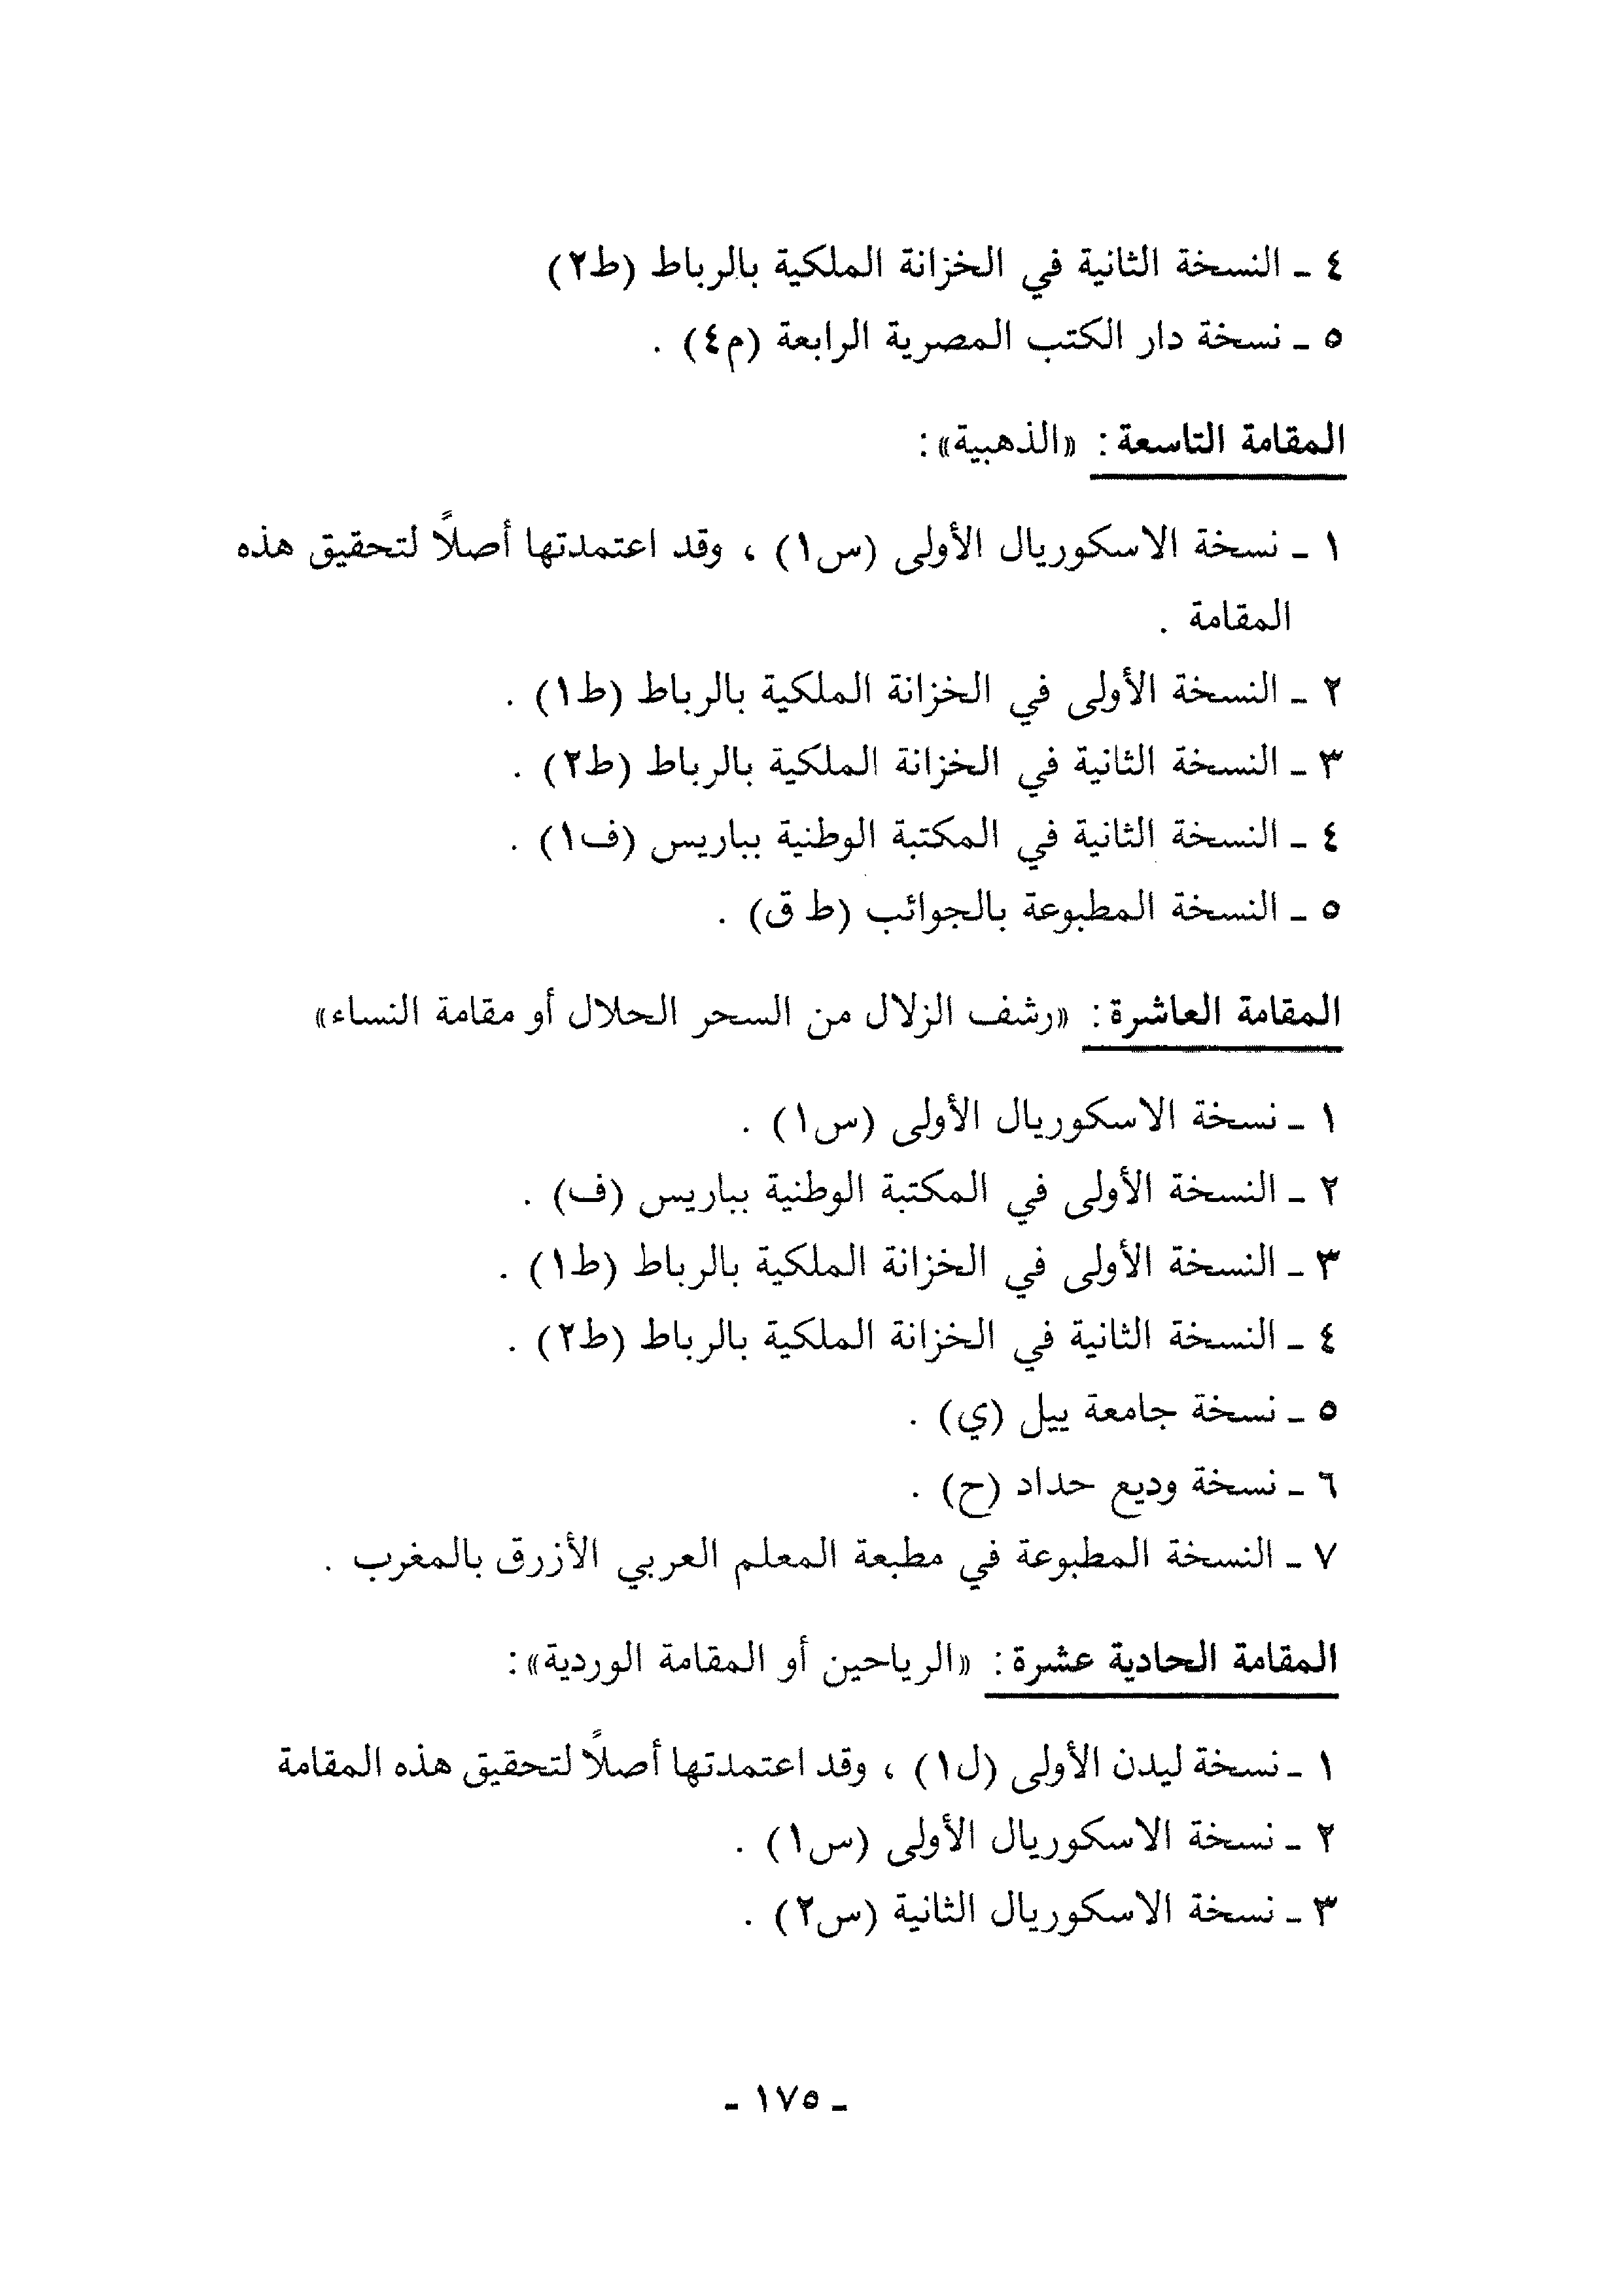 ٤ ـ النسخة الثانية في الخزانة الملكية بالرباط (ط٢)
٥ ـ نسخة دار الكتب المصرية الرابعة (م٤) .
المقامة التاسعة : «الذهبية» :
١ ـ نسخة الاسكوريال الأولى (س١) ، وقد اعتمدتها أصلاً لتحقيق هذه
المقامة .
٢ ـ النسخة الأولى في الخزانة الملكية بالرباط (ط١) .
٣ ـ النسخة الثانية في الخزانة الملكية بالرباط (ط٢) .
٤ ـ النسخة الثانية في المكتبة الوطنية بباريس (ف١) .
٥ ـ النسخة المطبوعة بالجوائب (ط ق) .
المقامة العاشرة : «رشف الزلال من السحر الحلال أو مقامة النساء»
١ ـ نسخة الاسكوريال الأولى (س١) .
٢ ـ النسخة الأولى في المكتبة الوطنية بباريس (ف) .
٣ ـ النسخة الأولى في الخزانة الملكية بالرباط (ط١) .
٤ ـ النسخة الثانية في الخزانة الملكية بالرباط (ط٢) .
٥ ـ نسخة جامعة ييل (ي) .
٦ ـ نسخة وديع حداد (ح) .
٧ ـ النسخة المطبوعة في مطبعة المعلم العربي الأزرق بالمغرب .
المقامة الحادية عشرة : «الرياحين أو المقامة الوردية» :
١ ـ نسخة ليدن الأولى (ل١) ، وقد اعتمدتها أصلاً لتحقيق هذه المقامة
٢ ـ نسخة الاسكوريال الأولى (س١) .
٣ ـ نسخة الاسكوريال الثانية (س٢) .
ـ ١٧٥ ـ